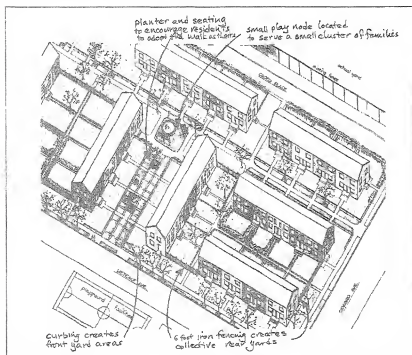 planter and seating
to encourage residents
to adopt the walk as theirs
small play node located
to serve a small cluster of families
playground
curbing creates
front yard areas
6 foot iron fencing creates
collective rear yards